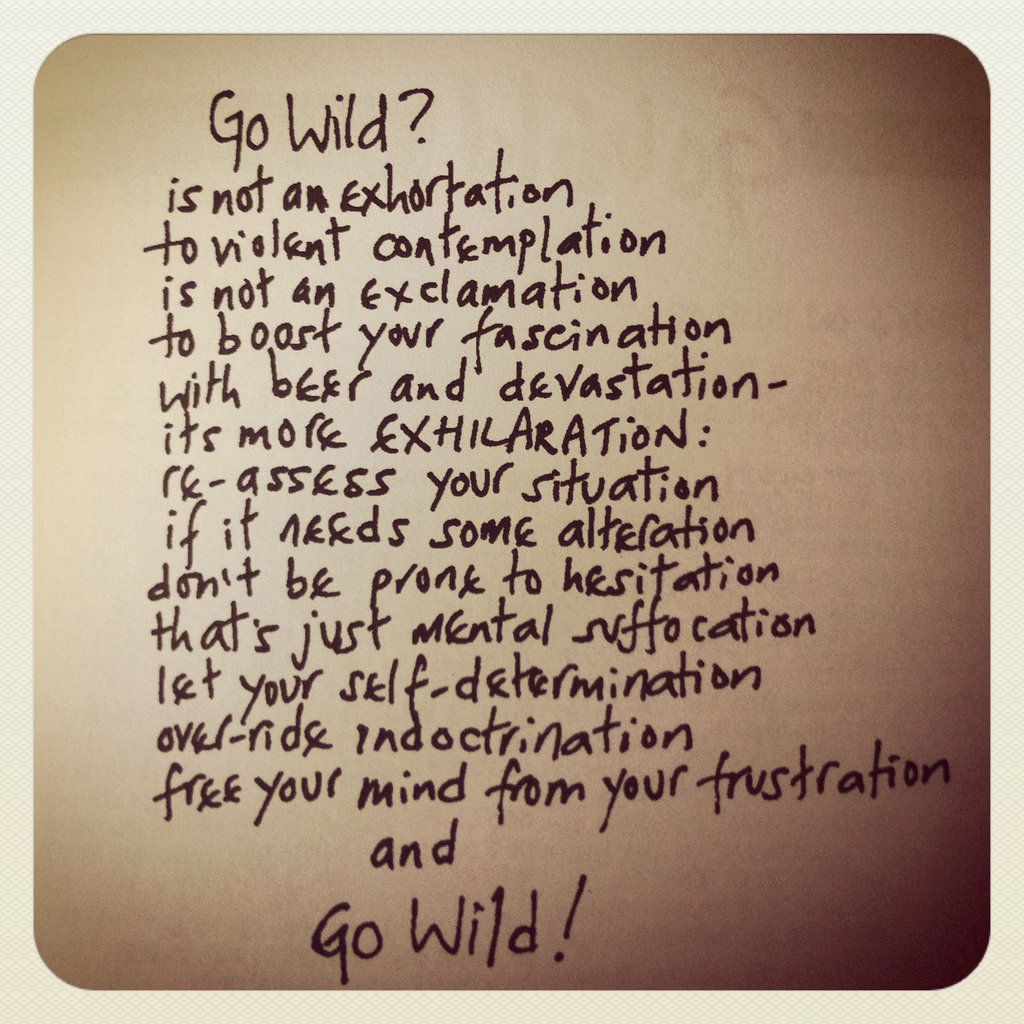 Go Wild?
is not an exhortation
to violent contemplation
is not an exclamation
to boost your fascination
with beer and devastation-
its more EXHILARATiON:
re-assess your situation
if it needs some alteration
don't be prone to hesitation
that's just mental suffocation
let your self-determination
over-ride indoctrination
free your mind from your frustration
and
Go Wild!